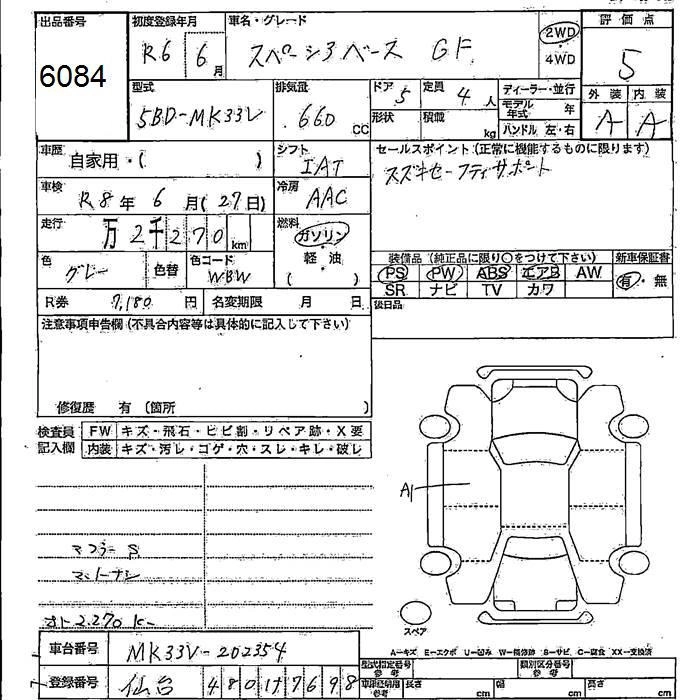 出品番号 初度登録年月 車名・グレード 評価点
6084 R6 6月 スペーシアベース GF 2WD ・ 4WD 5
型式 排気量 ドア 定員 ディーラー・並行 外装 内装
5BD-MK33V 660 CC 5 4人 モデル年式 年 A A
形状 積載 kg ハンドル 左・右
車歴 自家用・( ) シフト IAT セールスポイント(正常に機能するものに限ります)
車検 R8年 6月(27日) 冷房 AAC スズキセーフティサポート
走行 万2千270km 燃料 ガソリン ・ 軽・油 ( )
色 グレー 色替 色コード WBW 装備品(純正品に限り○をつけて下さい) 新車保証書
PS PW ABS エアB AW 有・無
SR ナビ TV カワ
R券 7,180円 名変期限 月 日 後日品
注意事項申告欄(不具合内容等は具体的に記入して下さい)
修復歴 有 (箇所 )
検査員 FW キズ・飛石・ヒビ割・リペア跡・X要
記入欄 内装 キズ・汚レ・コゲ・穴・スレ・キレ・破レ
A1
マフラー S
マットナシ
2.270
スペア
A-キズ E-エクボ U-凹み W-補修跡 S-サビ C-腐食 XX-交換済
車台番号 MK33V-202354
型式指定番号 参考 類別区分番号 参考
登録番号 仙台 480 17698
車庫証明用 参考 長さ cm 幅 cm 高さ cm